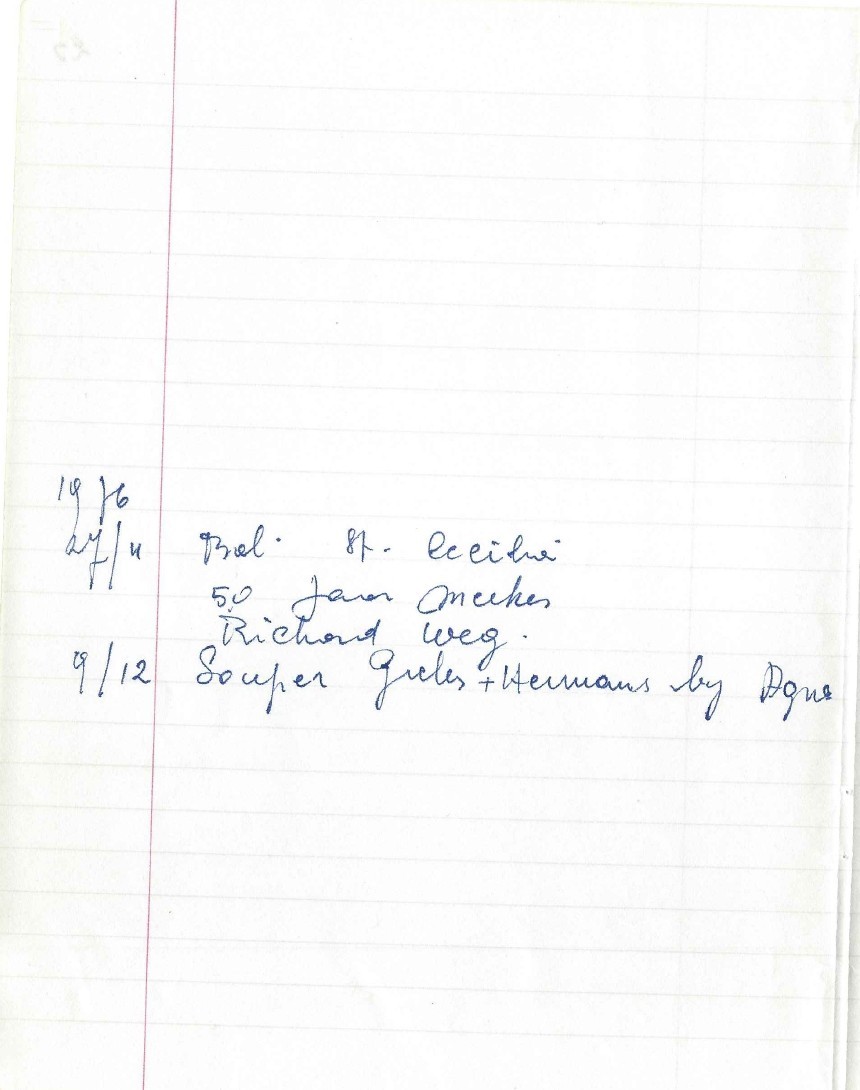 1976
27/11 Bal. St. Cecilia
50 Jaar Meekes
Richard weg.
9/12 Souper Greles + Hermans by Agnes